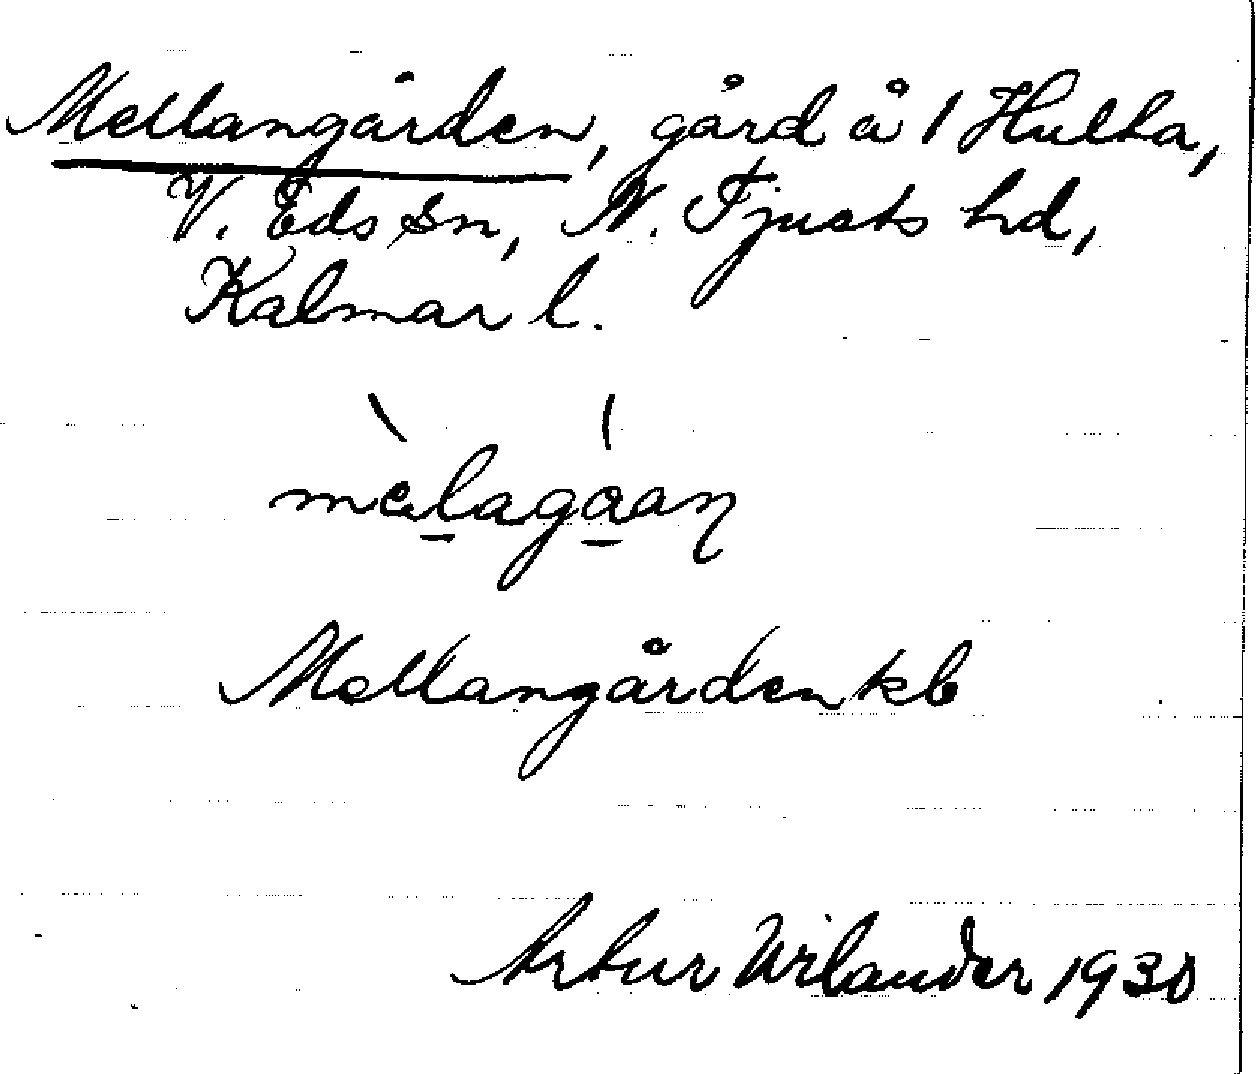 Mellangården, gård å 1 Hulta,
V. Eds sn, N. Tjusts hd,
Kalmar l.
mælagaaɳ
Mellangården kb
Artur Wilander 1930